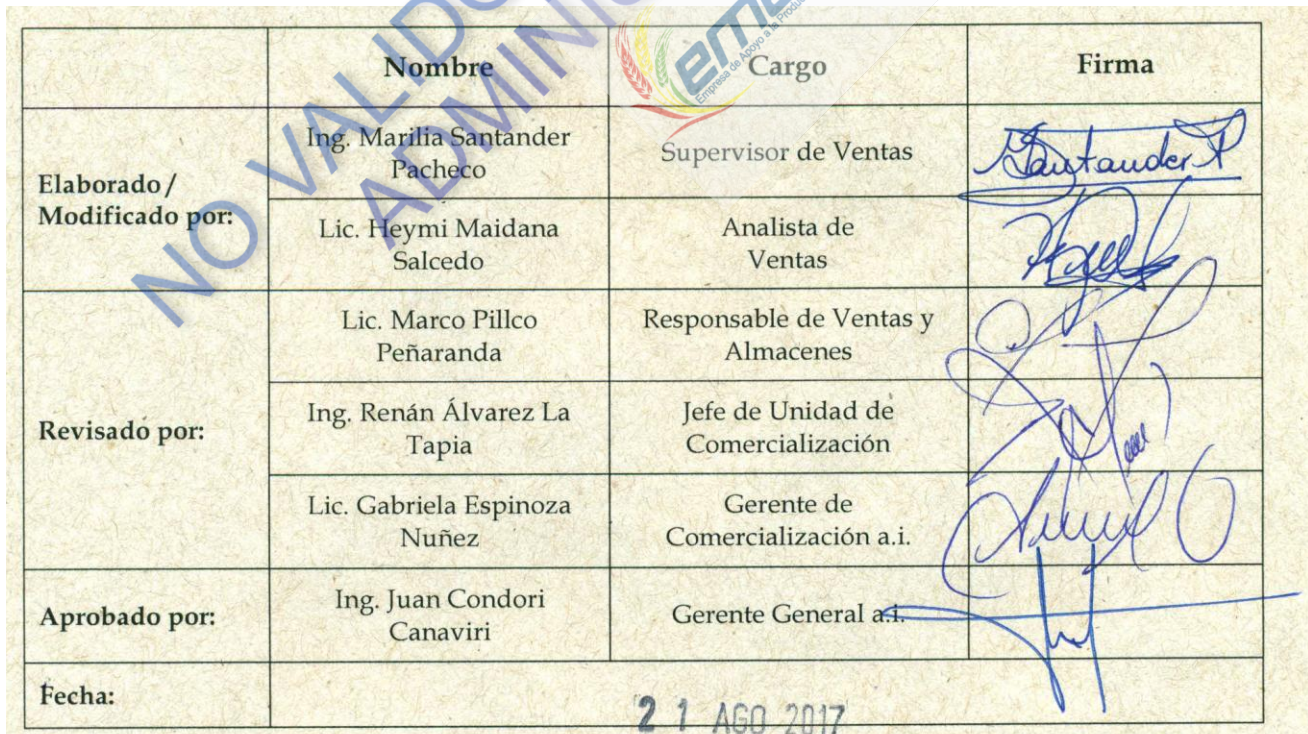 Nombre
Cargo
Firma
Elaborado/
Modificado por:
Ing. Marilia Santander
Pacheco
Supervisor de Ventas
Santander P
Lic. Heymi Maidana
Salcedo
Analista de
Ventas
Revisado por:
Lic. Marco Pillco
Peñaranda
Responsable de Ventas y
Almacenes
Ing. Renán Álvarez La
Tapia
Jefe de Unidad de
Comercialización
Lic. Gabriela Espinoza
Nuñez
Gerente de
Comercialización a.i.
Aprobado por:
Ing. Juan Condori
Canaviri
Gerente General a.i.
Fecha:
21 AGO 2017
NO VALIDO
Empresa de Apoyo a la